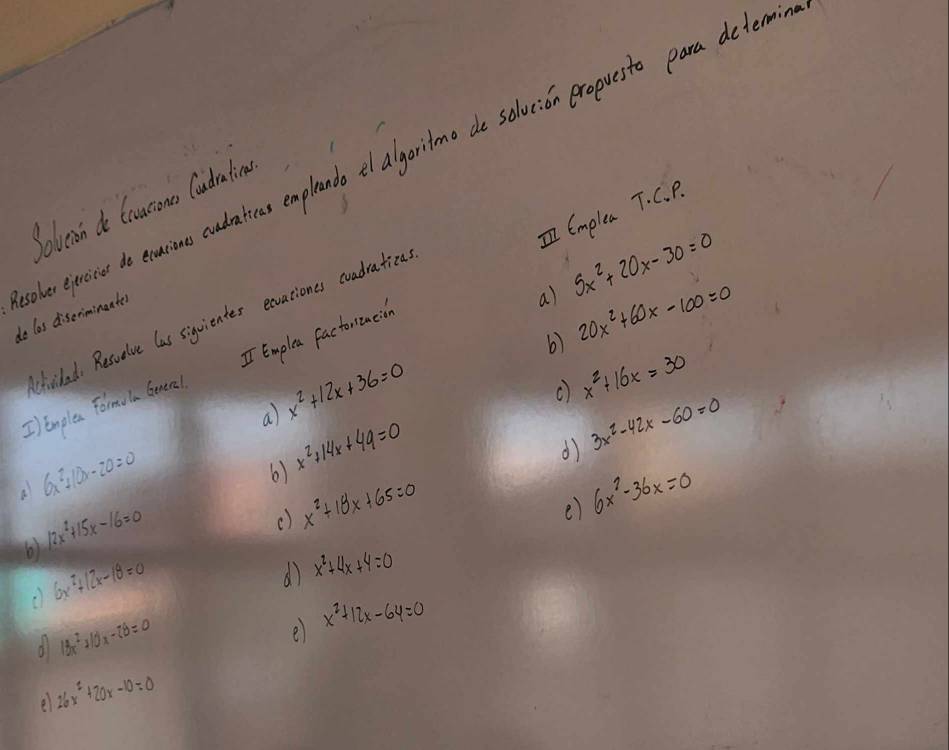 Solución de Ecuaciones Cuadraticas.
: Resolver ejercicios de ecuaciones cuadraticas empleando el algoritmo de solución propuesto para determinar
de los discriminantes
Actividad: Resuelve las siguientes ecuaciones cuadraticas.
I) Emplea Fórmula General.
a) 6x²+10x-20=0
b) 12x²+15x-16=0
c) 6x²+12x-18=0
d) 18x²+18x-28=0
e) 26x²+20x-10=0
II Emplea factorización
a) x²+12x+36=0
b) x²+14x+49=0
c) x²+18x+65=0
d) x²+4x+4=0
e) x²+12x-64=0
III Emplea T.C.P.
a) 5x²+20x-30=0
b) 20x²+60x-100=0
c) x²+16x=30
d) 3x²-42x-60=0
e) 6x²-36x=0